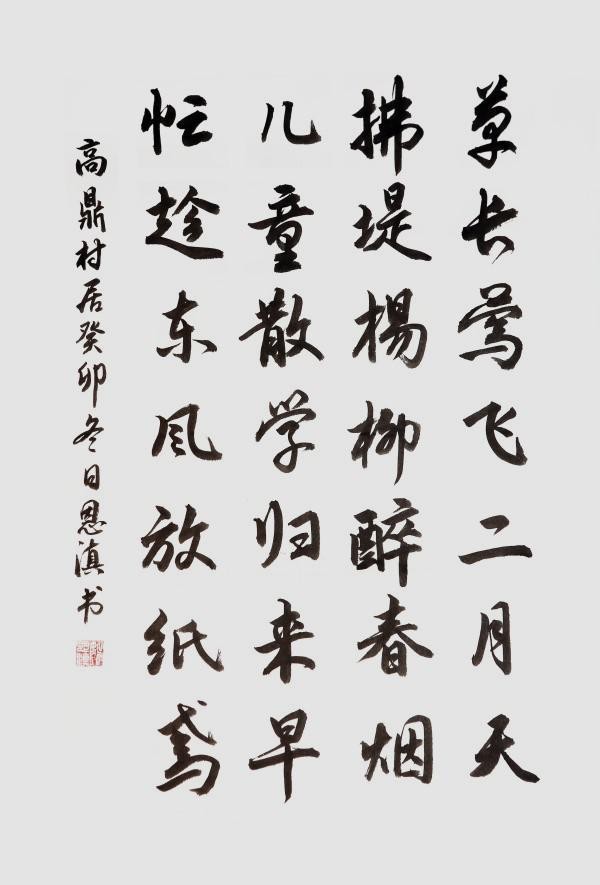 草长莺飞二月天
拂堤楊柳醉春烟
儿童散学归来早
忙趁东风放纸鸢
高鼎村居癸卯冬日恩滇书